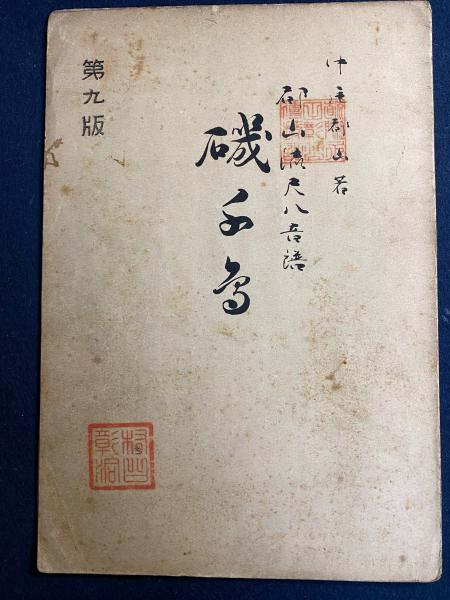 中尾都山著
都山流尺八音譜
磯千鳥
第九版